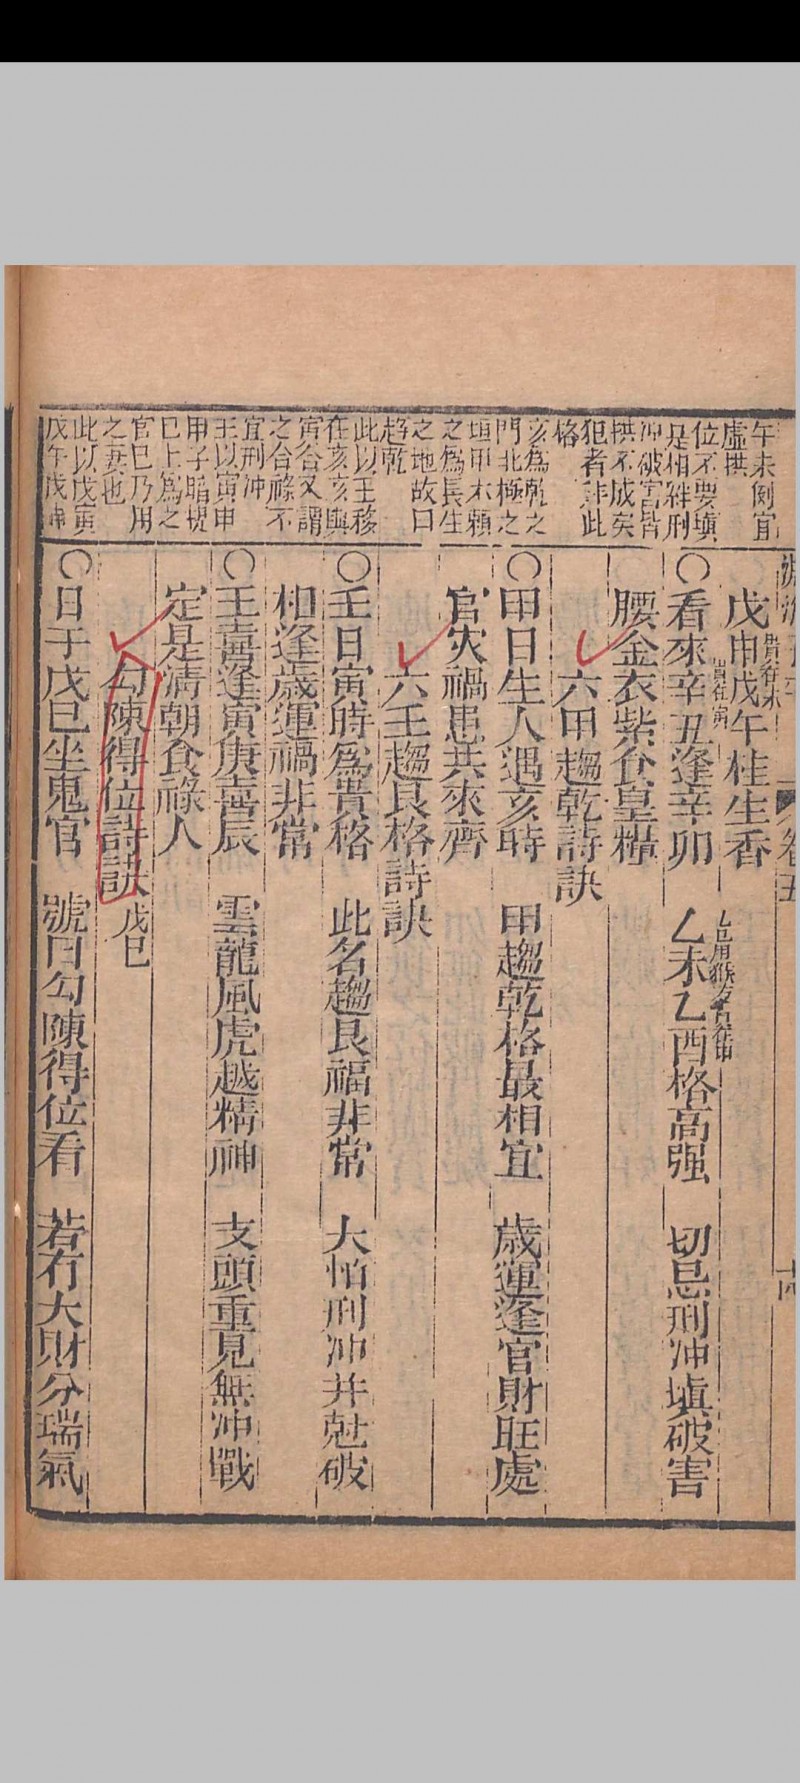 午未側宜
虛拱
位不要塡
是相絆刑
冲破官皆
拱不成矣
犯者非此
格
亥爲乾之
門北極之
垣甲木賴
之爲長生
之地故曰
趨乾
此以壬移
在亥亥與
寅合又謂
之合祿不
宜刑冲
壬以寅申
甲子暗
巳上爲之
官巳乃用
之妻也
此以戊寅
戊午戊
戊申戊午桂生香
貴在未
貴在寅
○看來辛丑逢辛卯 乙未乙酉格高强 切忌刑冲塡破害
乙巳用猴
腰金衣紫食皇糧
六甲趨乾詩訣
○甲日生人遇亥時 甲趨乾格最相宜 歲運逢官財旺處
官灾禍患共來齊
六壬趨艮格詩訣
○壬日寅時爲貴格 此名趨艮福非常 大怕刑冲并尅破
相逢歲運禍非常
○壬喜逢寅庚喜辰 雲龍風虎越精神 支頭重見無冲戰
定是清朝食祿人
勾陳得位詩訣 戊巳
○日干戊巳坐鬼官 號曰勾陳得位看 若有大財分瑞氣
卷五